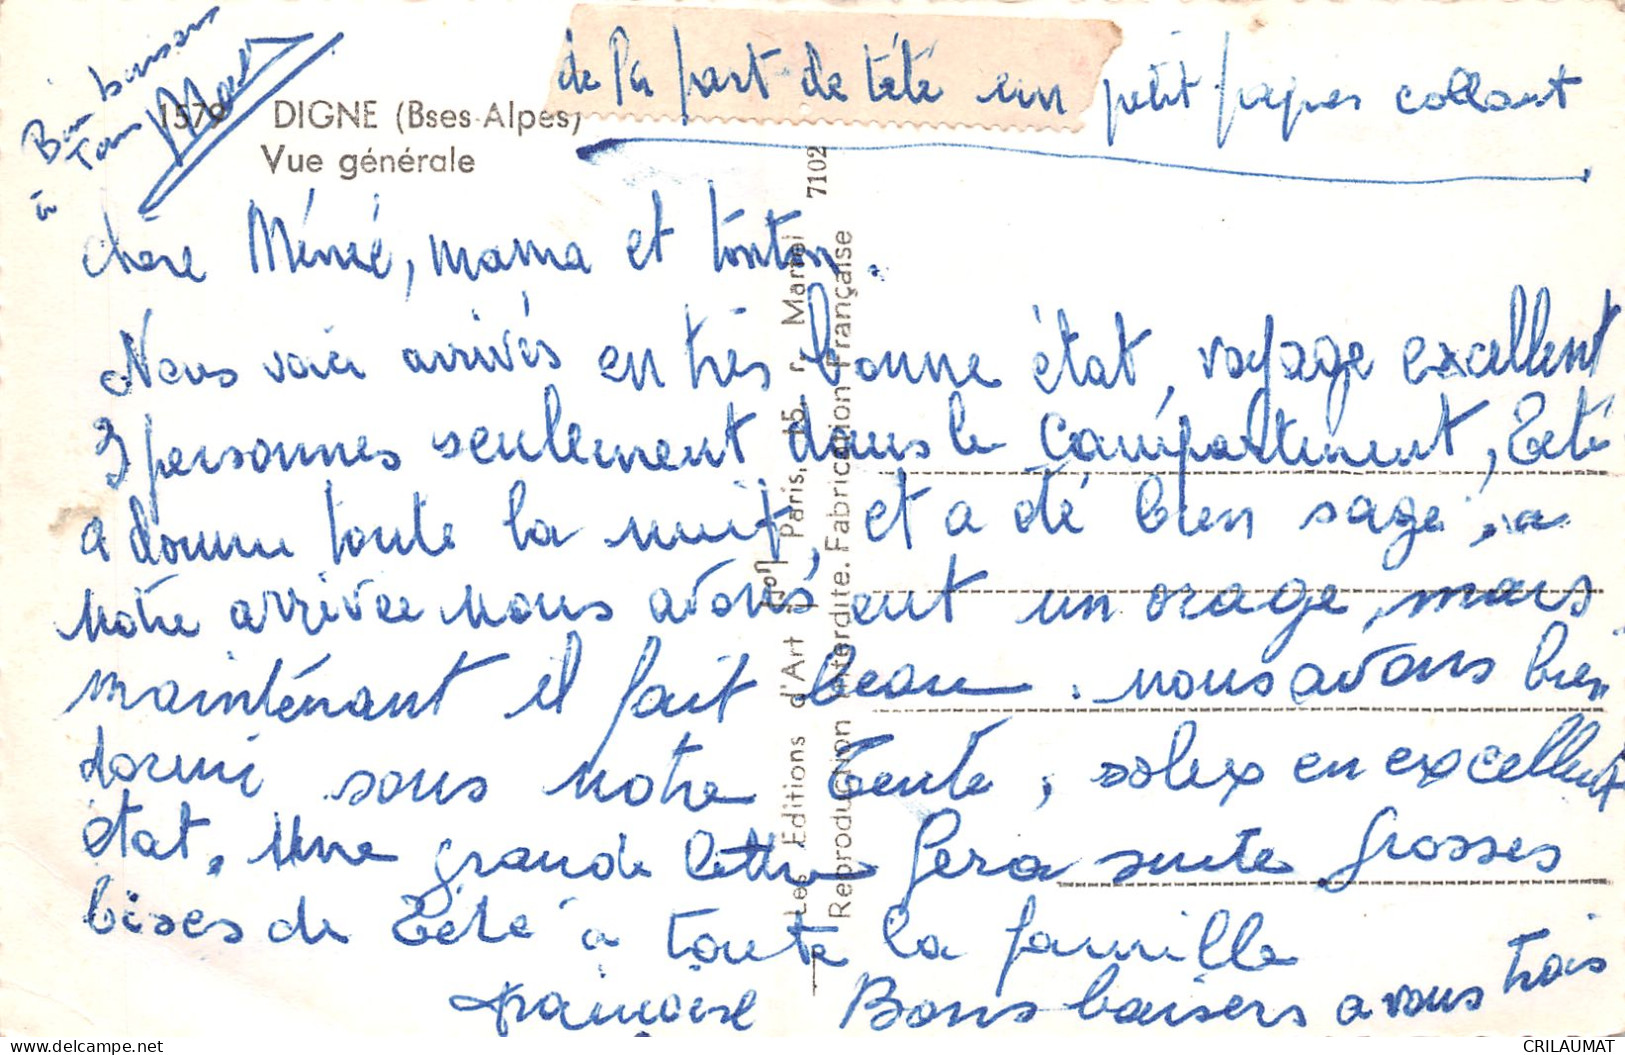 Bon baisers
à Tous
Marc
de la part de tété un petit papier collant
1579 DIGNE (Bses-Alpes)
Vue générale
chère Mémé, mama et tonton.
Nous voici arrivés en très bonne état, voyage excellent
3 personnes seulement dans le compartiment, Tété
a dormi toute la nuit, et a été bien sage, a
notre arrivée nous avons eut un orage, mais
maintenant il fait beau. nous avons bien
dormi sous notre tente, solex en excellent
état. Une grande lettre fera suite. Grosses
bises de Tété à toute la famille
Françoise Bons baisers a vous trois
Les Editions d'Art Yvon Paris, 15, r. Martel 7102
Reproduction Interdite. Fabrication Française
CRILAUMAT